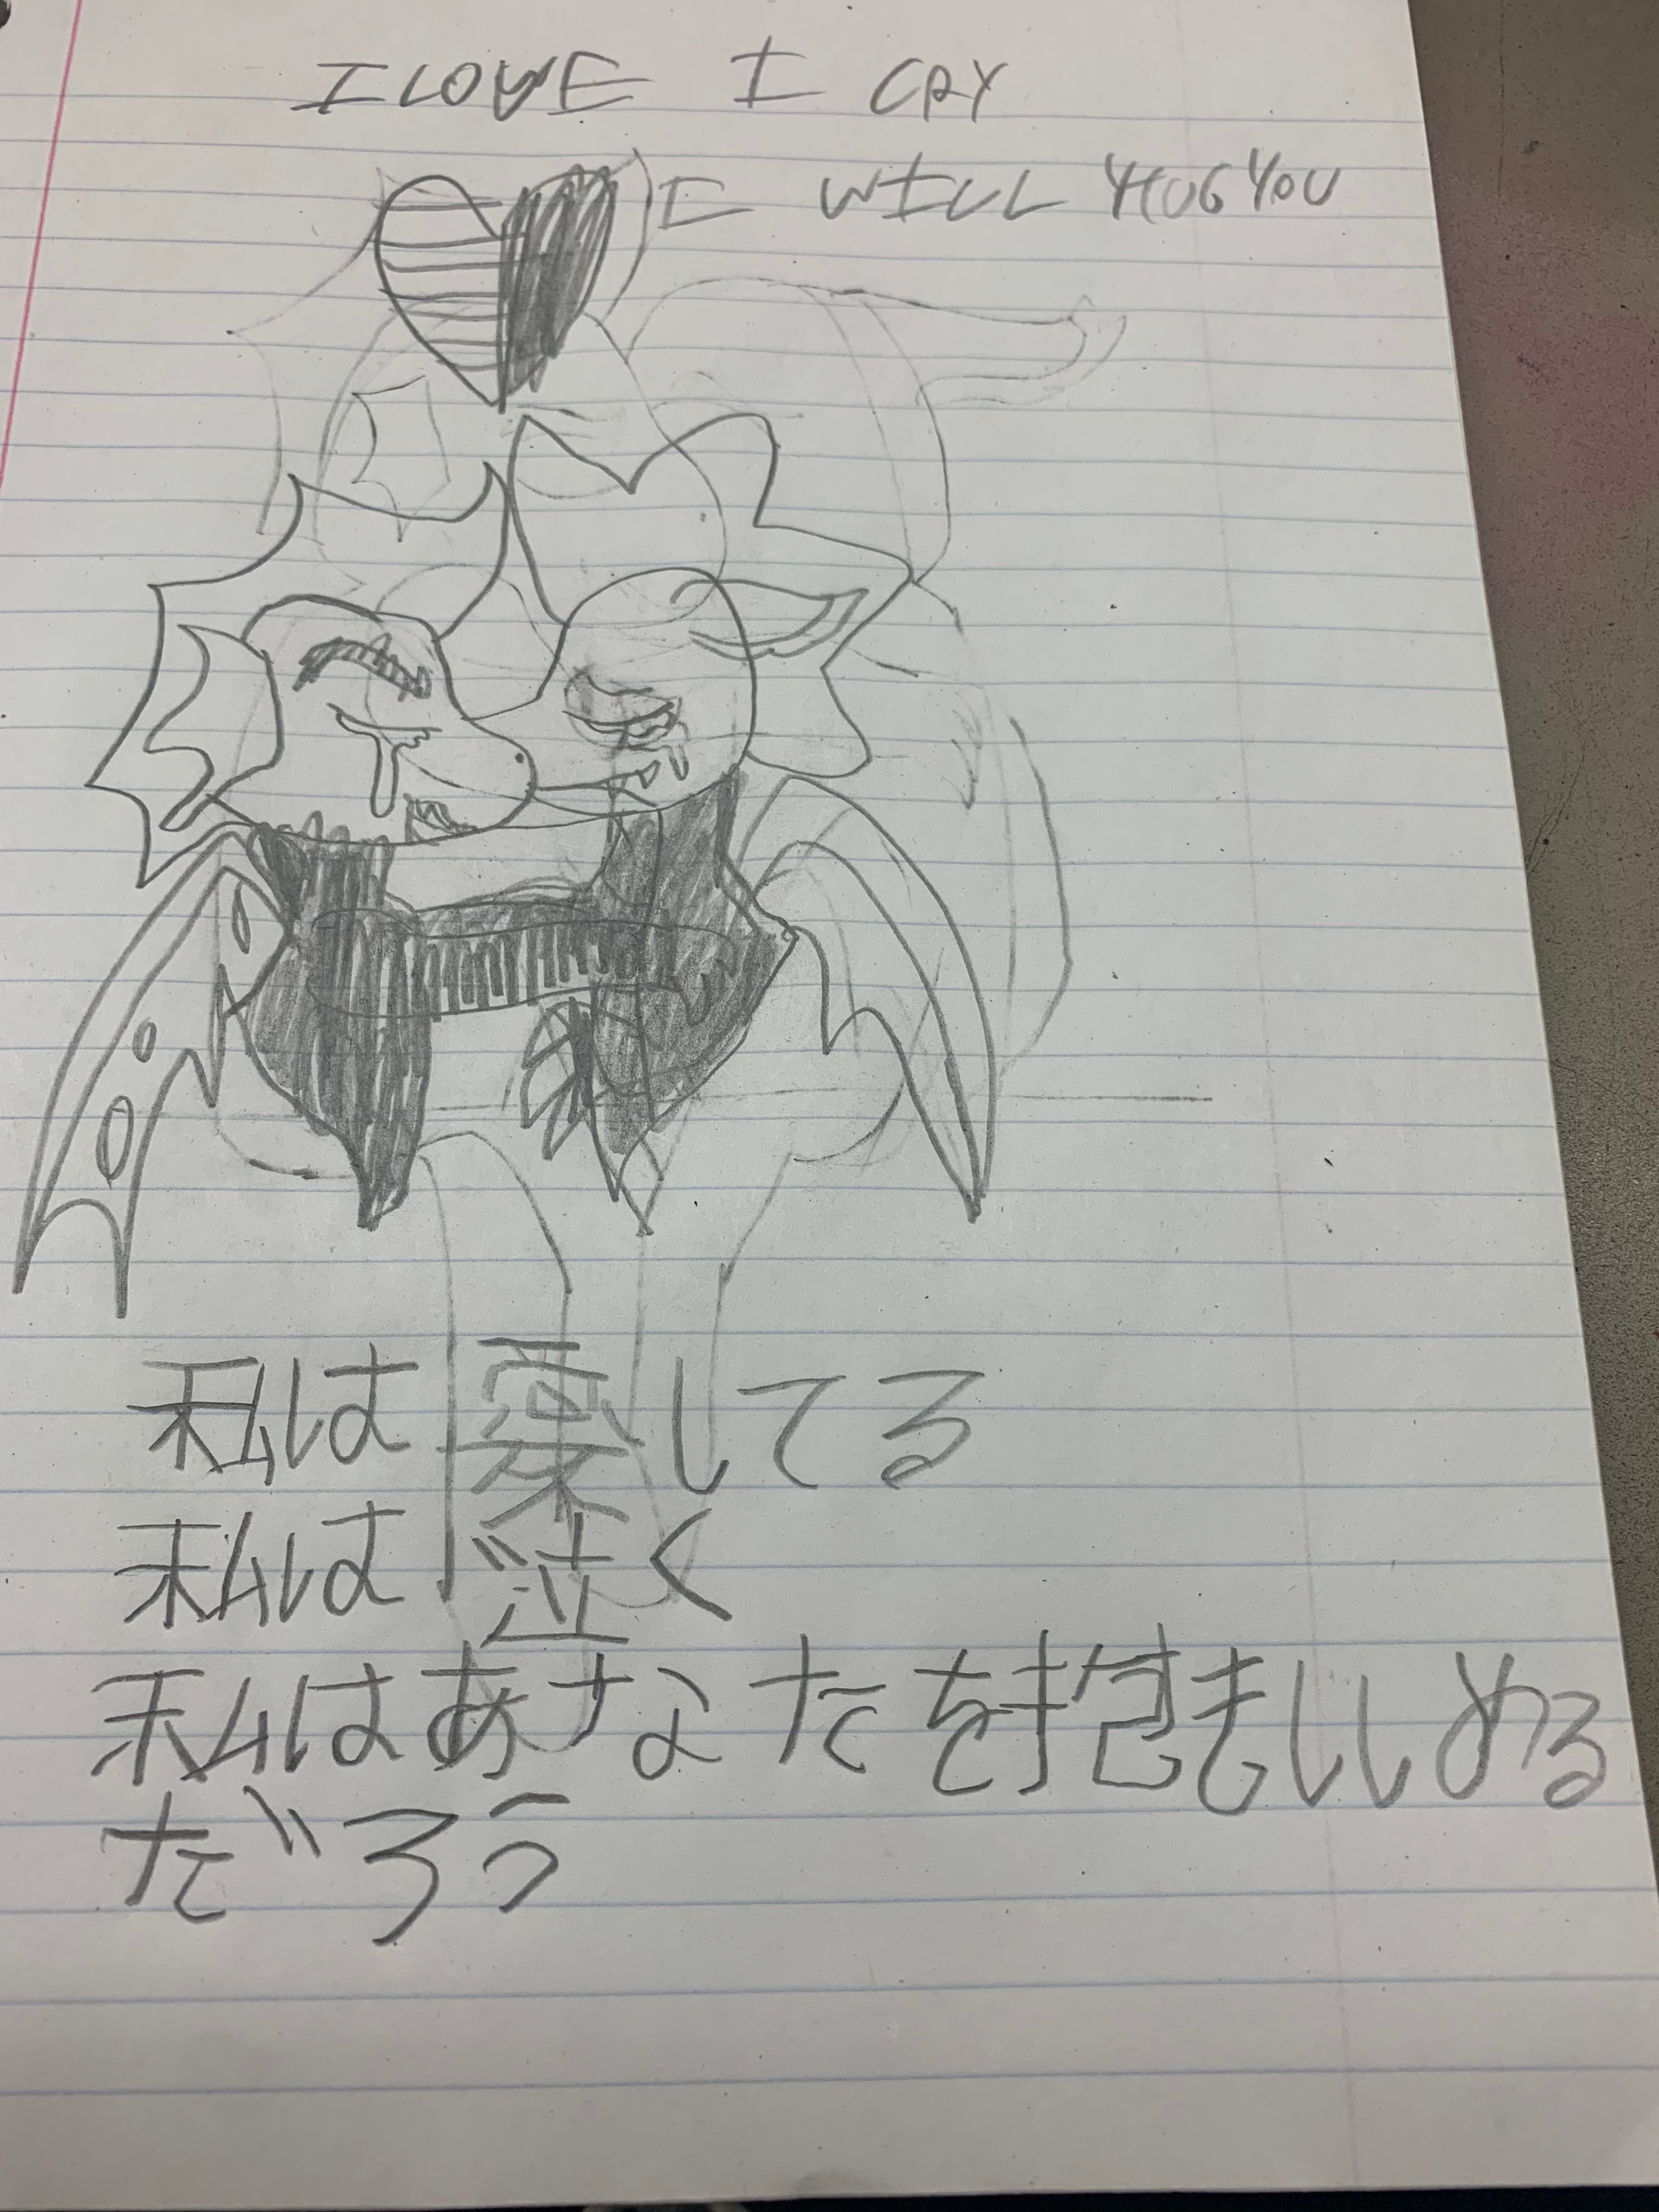 I LOVE I CRY
I WILL HUG YOU
私は愛してる
私は泣く
私はあなたを抱きしめる
だろう